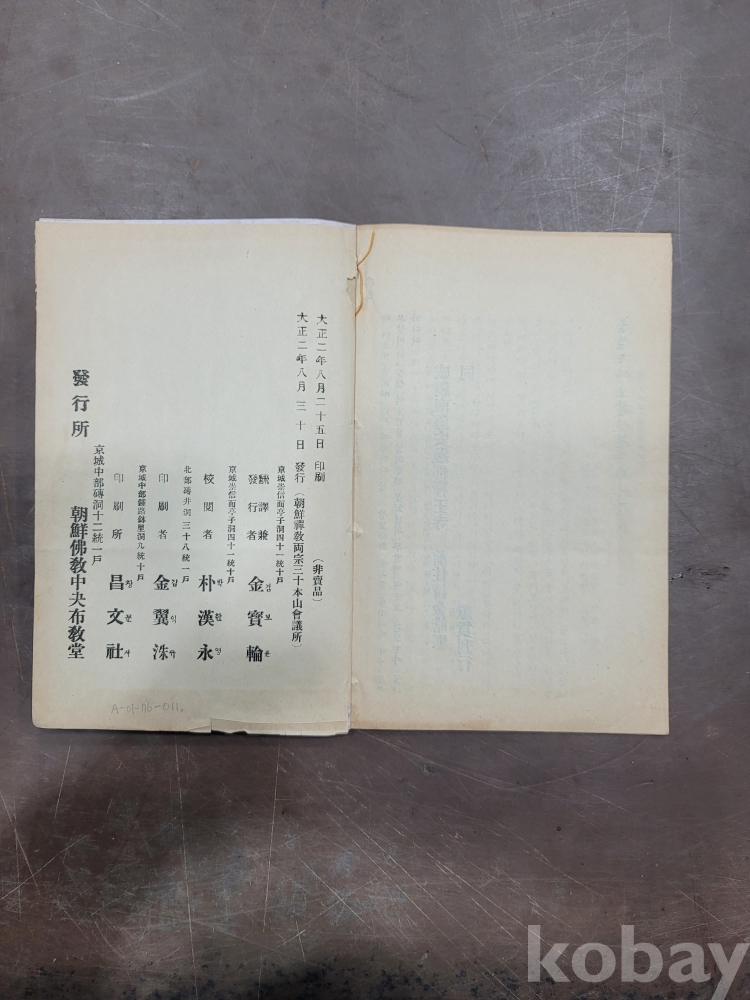 大正二年八月二十五日 印刷 (非賣品)
大正二年八月三十日 發行 (朝鮮禪敎兩宗三十本山會議所)
京城崇信面亭子洞四十一統十戶
飜譯兼
發行者 金寶輪 김보륜
京城崇信面亭子洞四十一統十戶
校閱者 朴漢永 박한영
北部磚井洞三十八統一戶
印刷者 金翼洙
京城中部鍾路 九統十戶
印刷所 昌文社 창문사
京城中部磚洞十二統一戶
發行所 朝鮮佛敎中央布敎堂
A-01-76-011.
kobay